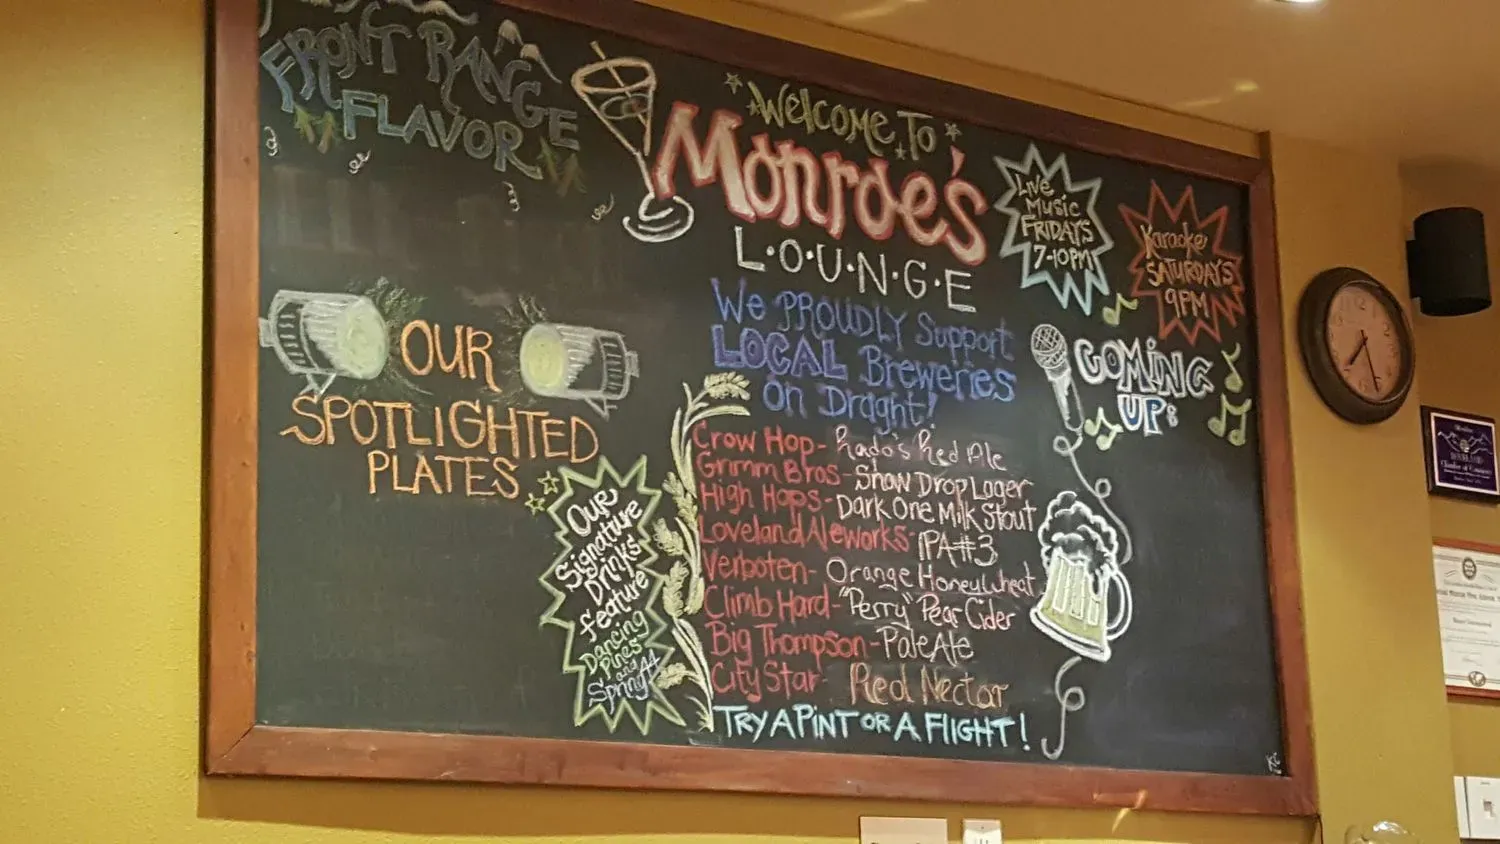 FRONT RANGE
FLAVOR
WELCOME TO
Monroe's
L·O·U·N·G·E
LIVE
MUSIC
FRIDAYS
7-10PM
Karaoke
SATURDAYS
9PM
We PROUDLY Support
LOCAL Breweries
on Draght!
COMING
UP:
OUR
SPOTLIGHTED
PLATES
Our
Signature
Drinks
feature
Dancing
Pines
and
Spring44
Crow Hop- Rado's Red Ale
Grimm Bros- Snow Drop Lager
High Hops- Dark One Milk Stout
Loveland Aleworks- IPA#3
Verboten- Orange Honey Wheat
Climb Hard- "Perry" Pear Cider
Big Thompson- Pale Ale
City Star- Red Nectar
TRY A PINT OR A FLIGHT!